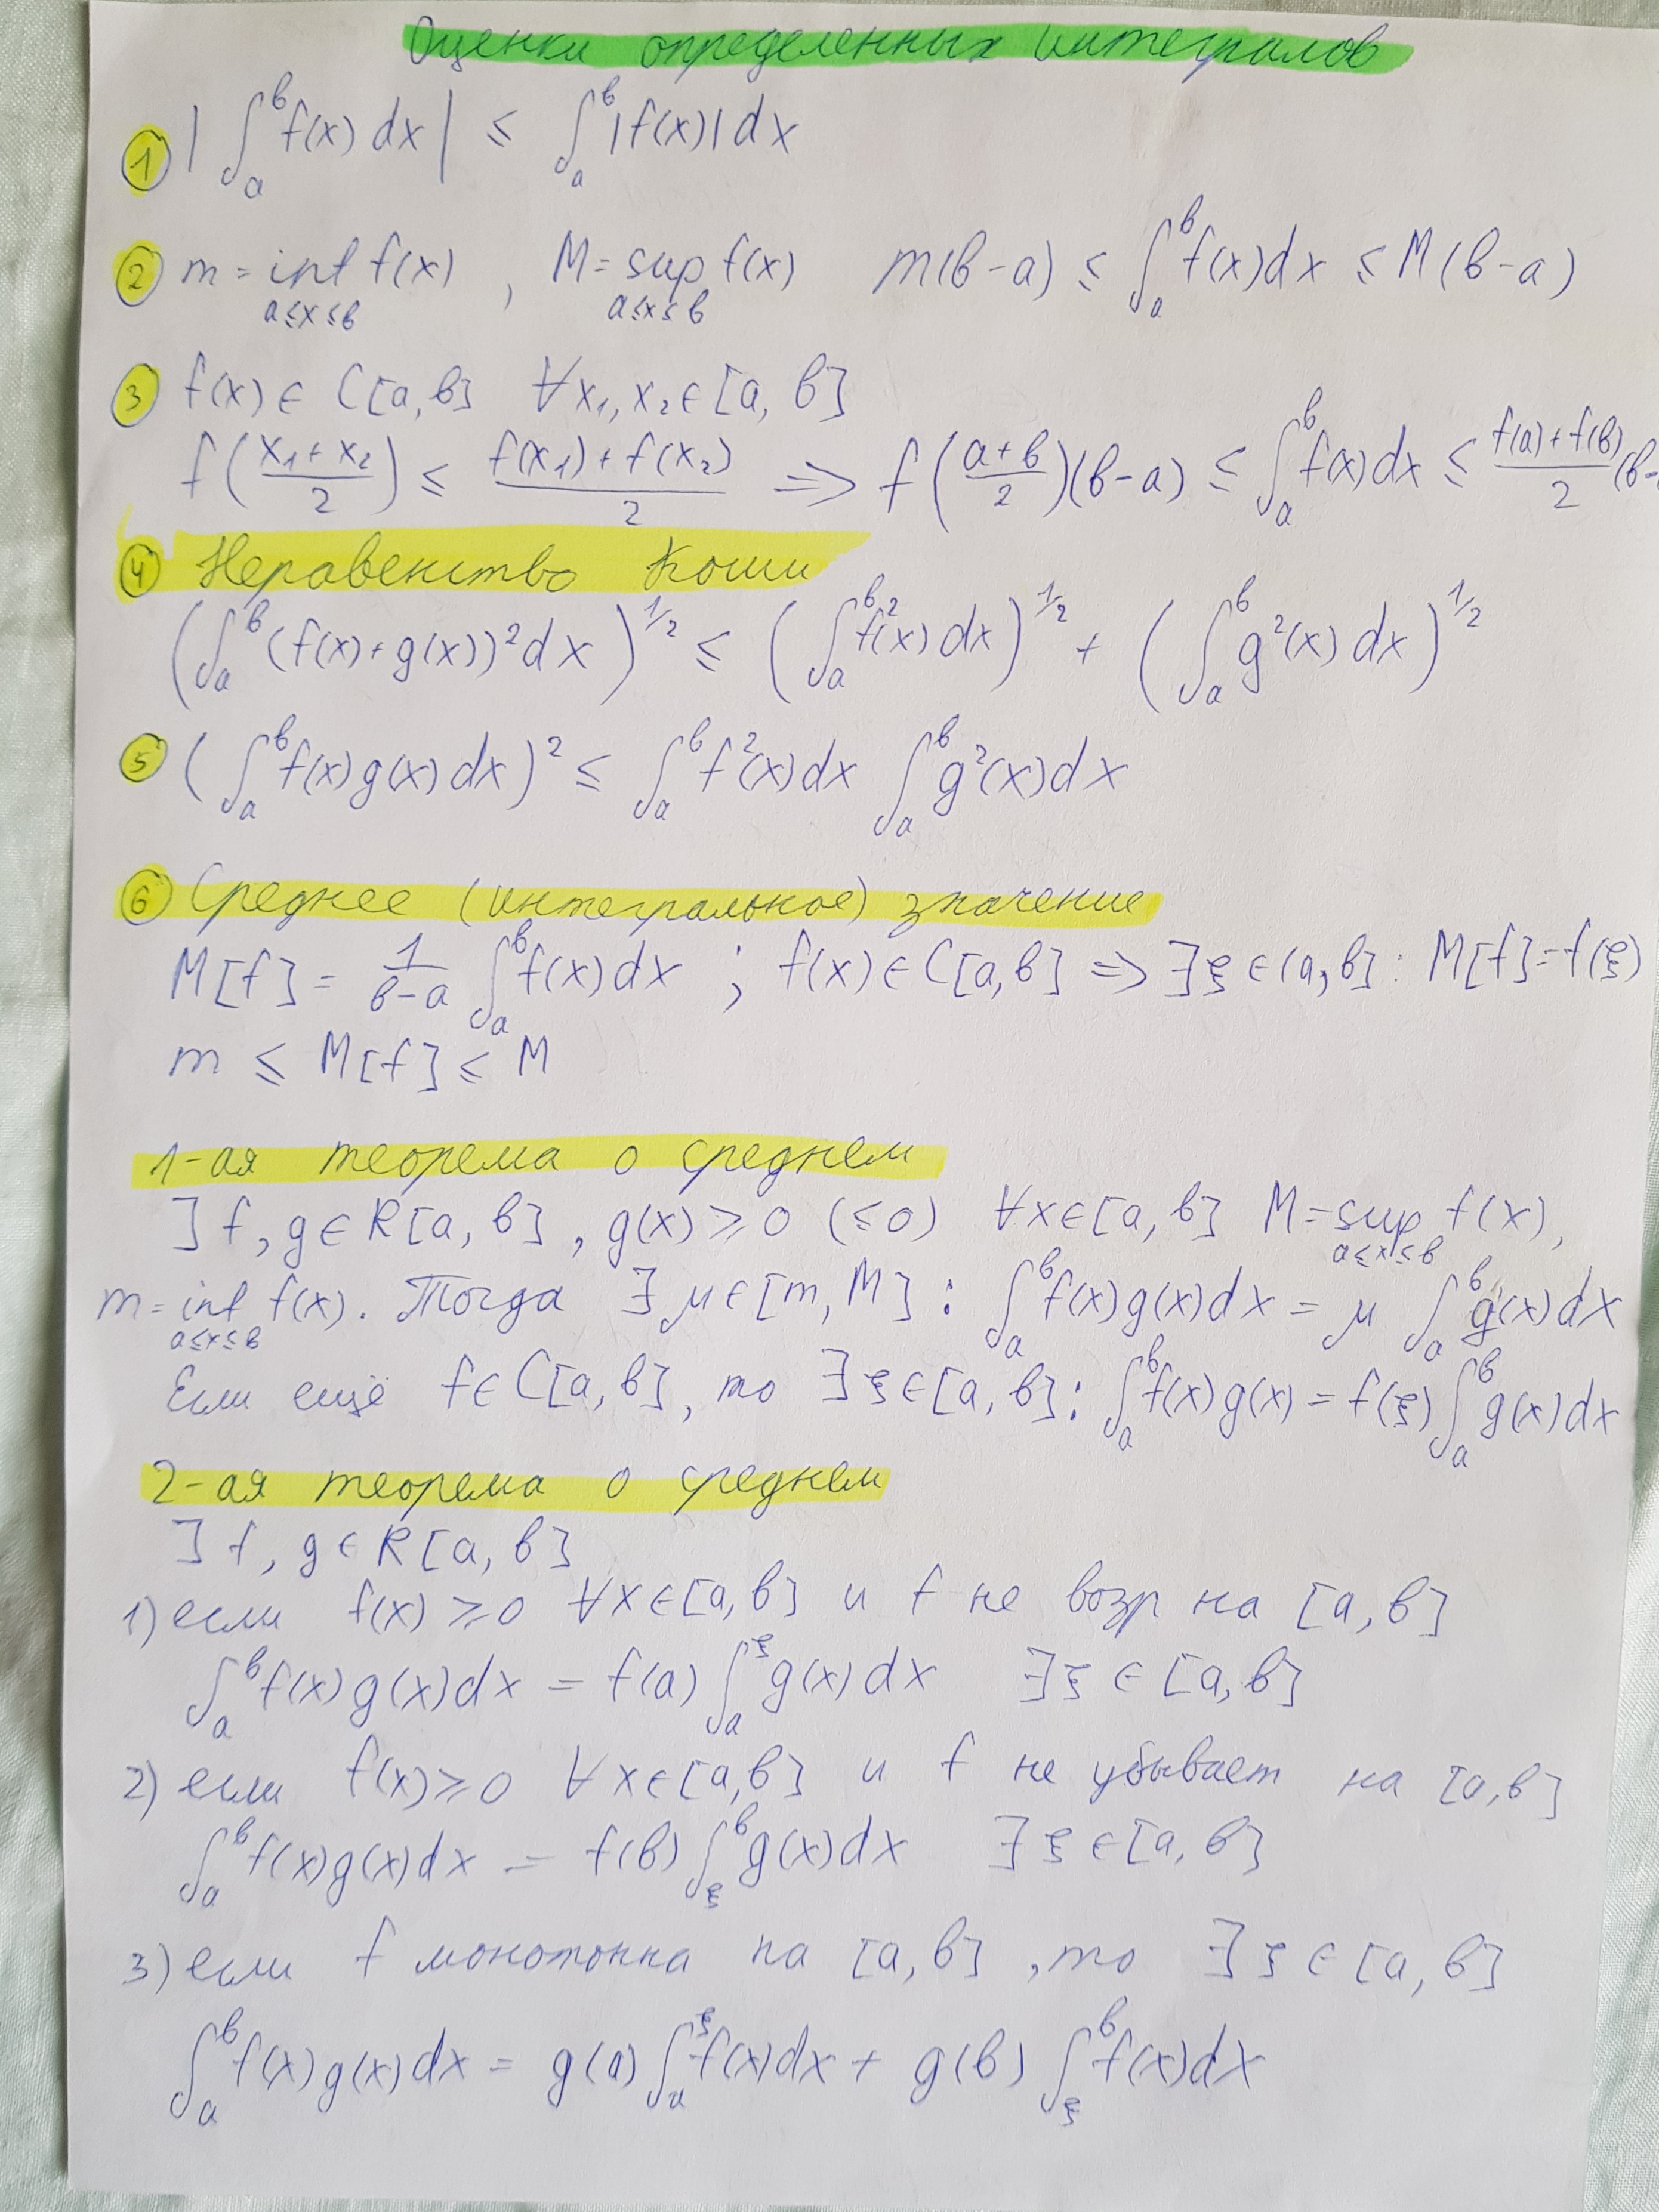 Оценки определенных интегралов
① | ∫ₐᵇ f(x) dx | ≤ ∫ₐᵇ |f(x)| dx
② m = inf f(x) , M = sup f(x) m(b-a) ≤ ∫ₐᵇ f(x)dx ≤ M(b-a)
a≤x≤b a≤x≤b
③ f(x) ∈ C[a,b] ∀x₁,x₂∈[a,b]
f((x₁+x₂)/2) ≤ (f(x₁)+f(x₂))/2 ⇒ f((a+b)/2)(b-a) ≤ ∫ₐᵇ f(x)dx ≤ (f(a)+f(b))/2 (b-
④ Неравенство Коши
(∫ₐᵇ (f(x)+g(x))²dx)^1/2 ≤ (∫ₐᵇ f²(x) dx)^1/2 + (∫ₐᵇ g²(x) dx)^1/2
⑤ (∫ₐᵇ f(x)g(x) dx)² ≤ ∫ₐᵇ f²(x)dx ∫ₐᵇ g²(x)dx
⑥ Среднее (интегральное) значение
M[f] = 1/(b-a) ∫ₐᵇ f(x)dx ; f(x)∈C[a,b] ⇒ ∃ξ∈(a,b] : M[f]=f(ξ)
m ≤ M[f] ≤ M
1-ая теорема о среднем
∃ f, g ∈ R[a,b], g(x) ≥ 0 (≤0) ∀x∈[a,b] M = sup f(x),
a≤x≤b
m = inf f(x). Тогда ∃ μ∈[m,M] : ∫ₐᵇ f(x)g(x)dx = μ ∫ₐᵇ g(x)dx
a≤x≤b
Если ещё f∈C[a,b], то ∃ξ∈[a,b] : ∫ₐᵇ f(x)g(x) = f(ξ)∫ₐᵇ g(x)dx
2-ая теорема о среднем
∃ f, g ∈ R[a,b]
1) если f(x) ≥ 0 ∀x∈[a,b] и f не возр на [a,b]
∫ₐᵇ f(x)g(x)dx = f(a) ∫ₐ^ξ g(x)dx ∃ξ ∈ [a,b]
2) если f(x) ≥ 0 ∀x∈[a,b] и f не убывает на [a,b]
∫ₐᵇ f(x)g(x)dx = f(b) ∫_ξ^b g(x)dx ∃ξ∈[a,b]
3) если f монотонна на [a,b] , то ∃ξ∈[a,b]
∫ₐᵇ f(x)g(x)dx = g(a)∫ₐ^ξ f(x)dx + g(b) ∫_ξ^b f(x)dx